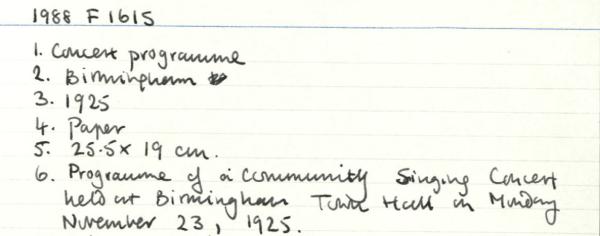 1988 F 1615
1. Concert programme
2. Birmingham
3. 1925
4. Paper
5. 25.5 x 19 cm.
6. Programme of a Community Singing Concert
held at Birmingham Town Hall on Monday
November 23, 1925.